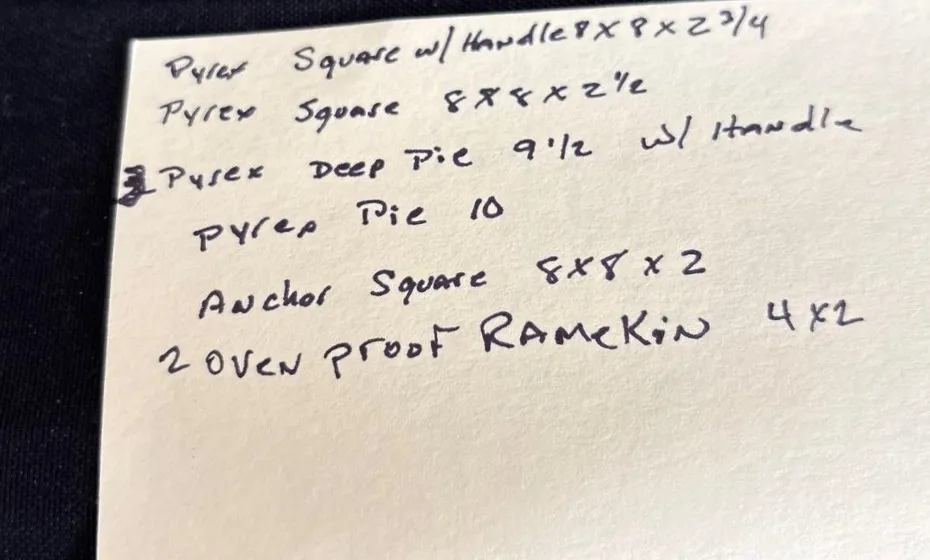 Pyrex Square w/ Handle 8 x 8 x 2 3/4
Pyrex Square 8 x 8 x 2 1/2
Pyrex Deep Pie 9 1/2 w/ Handle
Pyrex Pie 10
Anchor Square 8 x 8 x 2
2 Oven Proof RAMeKiN 4 x 2